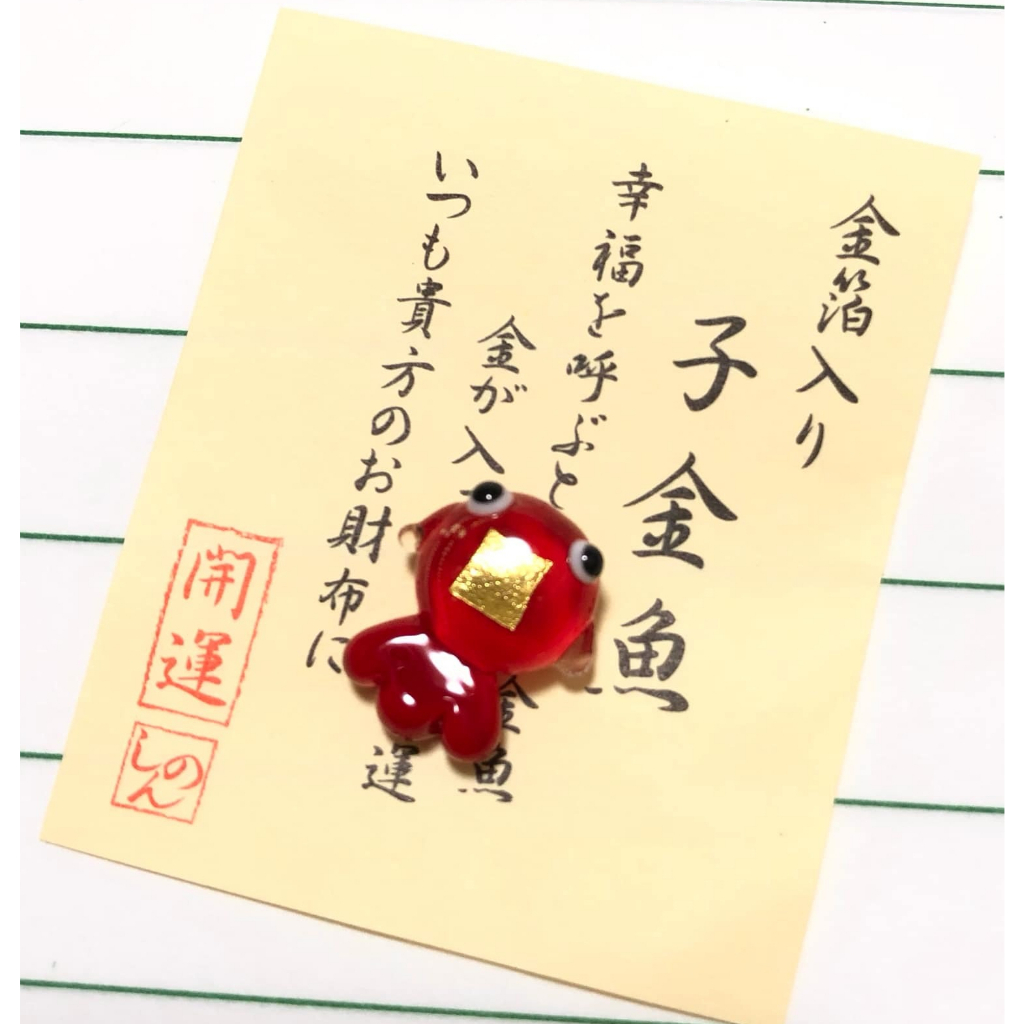 金箔入り
子金魚
幸福を呼ぶと
金魚
金が入
運
いつも貴方のお財布に
開運
のん
し